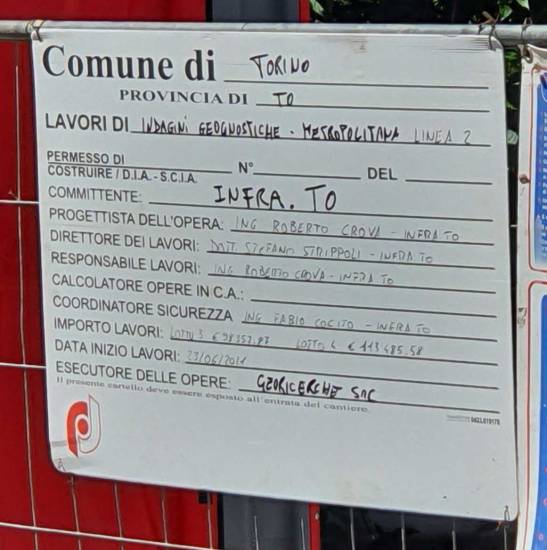 Comune di TORINO
PROVINCIA DI TO
LAVORI DI INDAGINI GEOGNOSTICHE - METROPOLITANA LINEA 2
PERMESSO DI
COSTRUIRE / D.I.A. - S.C.I.A. N° DEL
COMMITTENTE: INFRA.TO
PROGETTISTA DELL'OPERA: ING ROBERTO CROVA - INFRA TO
DIRETTORE DEI LAVORI: DOTT. STEFANO STRIPPOLI - INFRA TO
RESPONSABILE LAVORI: ING ROBERTO CROVA - INFRA TO
CALCOLATORE OPERE IN C.A.:
COORDINATORE SICUREZZA ING FABIO COCITO - INFRA TO
IMPORTO LAVORI: LOTTO 3 € LOTTO 4 € 113 485.58
DATA INIZIO LAVORI:
ESECUTORE DELLE OPERE: GEORICERCHE SNC
Il presente cartello deve essere esposto all'entrata del cantiere.